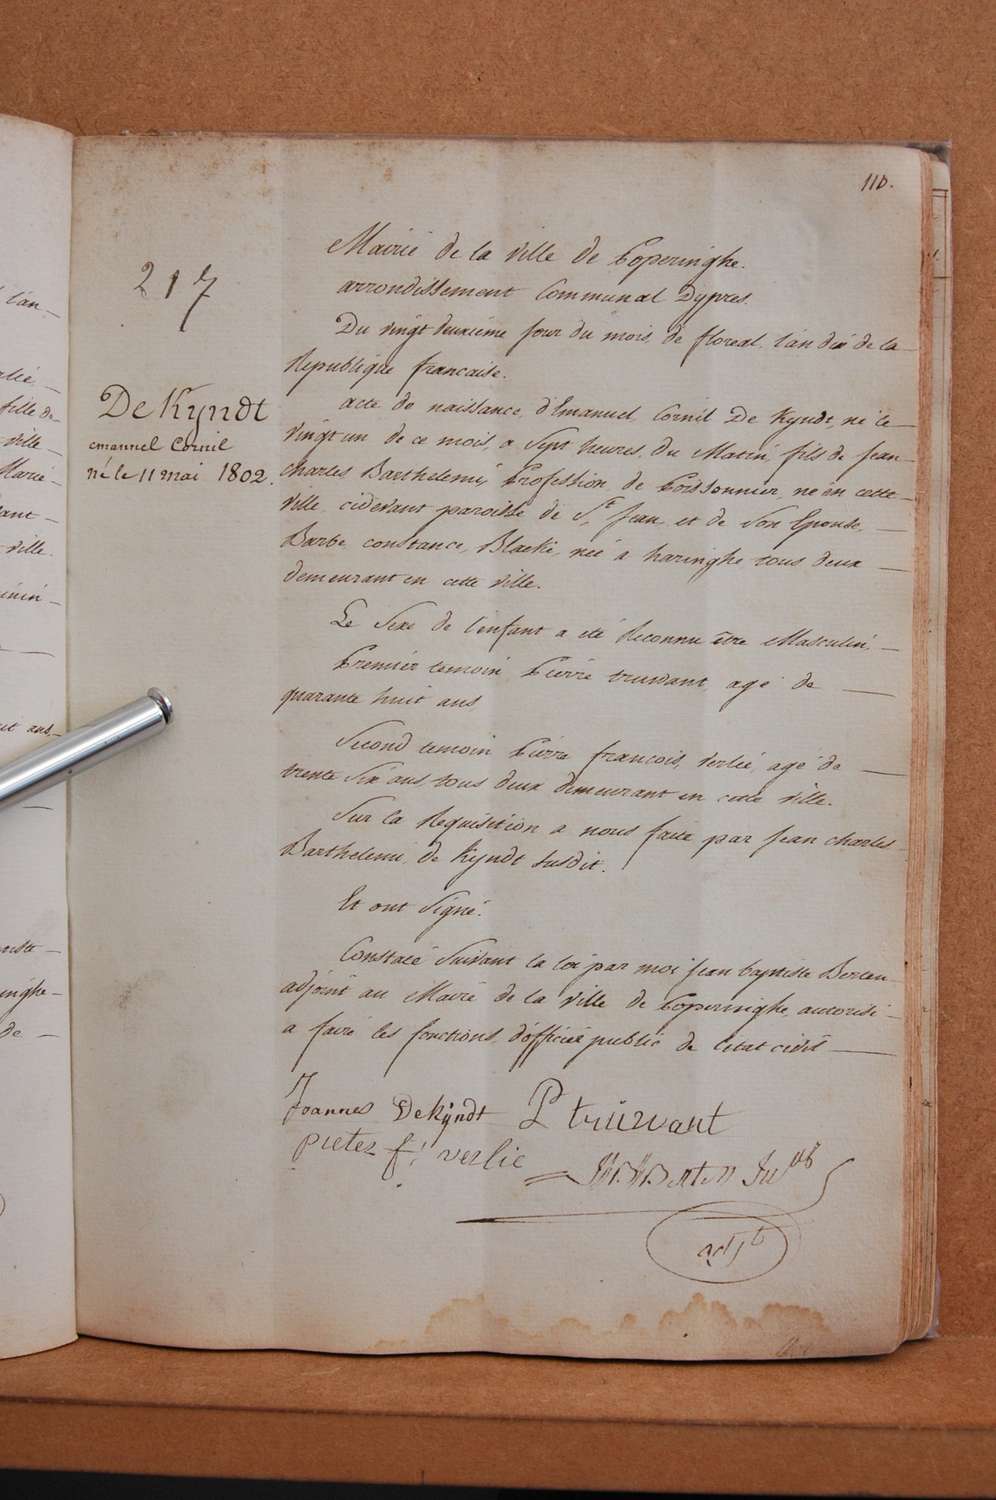 110.
217
Mairie de la ville de Poperinghe.
arrondissement Communal Dypres.
Du vingt deuxième jour du mois de floreal lan dix de la
Republique francaise.
De Kyndt
emanuel Cornil
né le 11 mai 1802.
acte de naissance, d'Emanuel Cornil De Kyndt, né le
vingt un de ce mois, a Sept heures du Matin, fils de jean
charles Barthelemi, Profession de Poissonnier, né en cette
ville, cidevant paroisse de St. Jean, et de Son Epouse,
Barbe constance Blackè, née a haringhe tous deux
demeurant en cette ville.
Le Sexe de l'enfant a été Reconnu être Masculin,
Premier temoin Pierre truwant, agé de
quarante huit ans
Second temoin Pierre francois verlié, agé de
trente Six ans, tous deux demeurant en cette ville.
Sur la Requisition a nous faite par jean charles
Barthelemi de Kyndt Susdit.
Et ont Signé.
Constaté Suivant la loi par moi jean baptiste Berten
adjoint au Maire de la ville de Poperinghe autorisé
a faire les fonctions d'officier public de l'etat civil
Joannes Dekijndt P truwant
pieter f: verlie
Berten
adjt
l'an
fille de
ville
ant
ville.
ans,
inghe
de